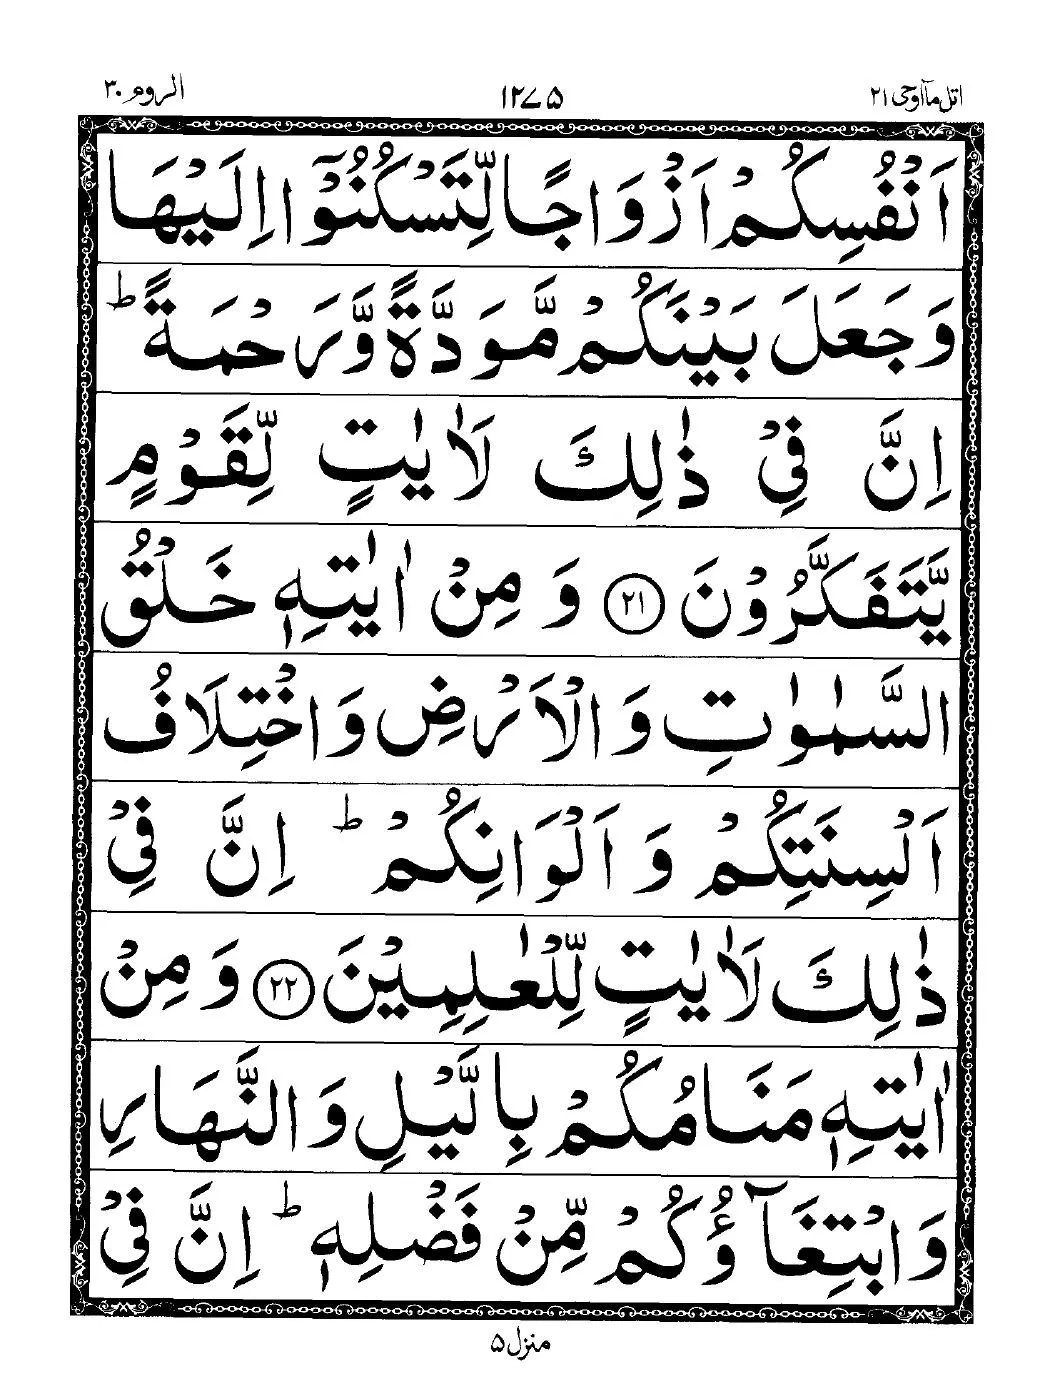 اتل مآاوحی ۲۱ ۱۲۷۵ الروم ۳۰
اَنْفُسِكُمْ اَزْوَاجًا لِّتَسْكُنُوْۤا اِلَيْهَا
وَجَعَلَ بَيْنَكُمْ مَّوَدَّةً وَّرَحْمَةً ؕ
اِنَّ فِيْ ذٰلِكَ لَاٰيٰتٍ لِّقَوْمٍ
يَّتَفَكَّرُوْنَ ۲۱ وَ مِنْ اٰيٰتِهٖ خَلْقُ
السَّمٰوٰتِ وَ الْاَرْضِ وَ اخْتِلَافُ
اَلْسِنَتِكُمْ وَ اَلْوَانِكُمْ ؕ اِنَّ فِيْ
ذٰلِكَ لَاٰيٰتٍ لِّلْعٰلِمِيْنَ ۲۲ وَ مِنْ
اٰيٰتِهٖ مَنَامُكُمْ بِالَّيْلِ وَ النَّهَارِ
وَ ابْتِغَآؤُكُمْ مِّنْ فَضْلِهٖ ؕ اِنَّ فِيْ
منزل ۵